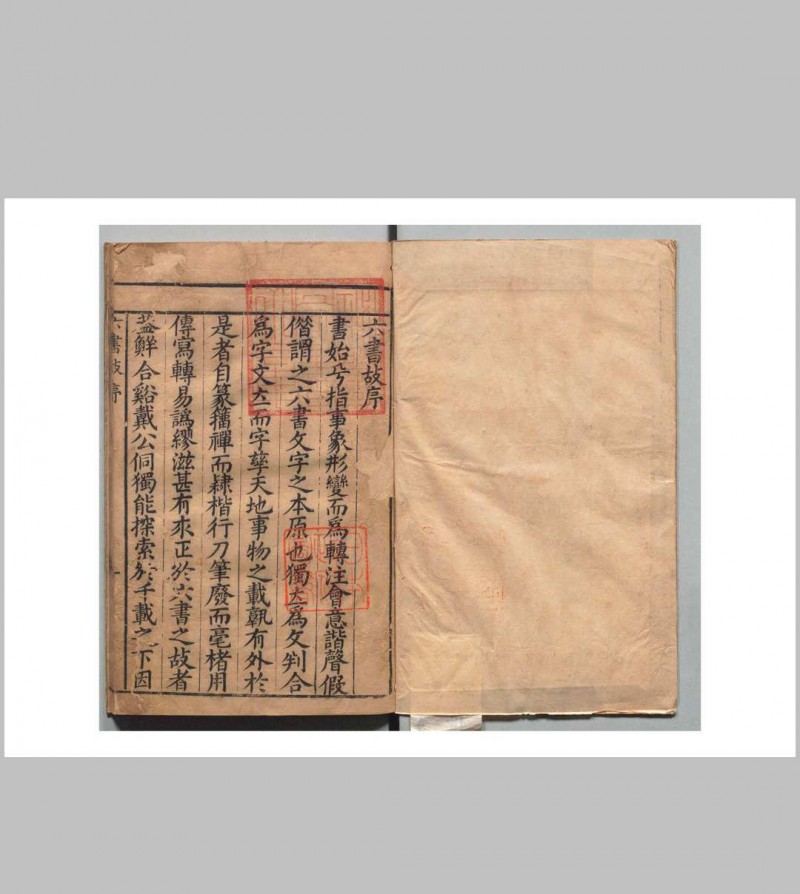 六書故序
書始兮指事象形變而爲轉注會意諧聲假
僣謂之六書文字之本原也獨𠀤爲文判合
爲字文𠀤而字孳天地事物之載孰有外於
是者自篆籒禪而隸楷行刀筆廢而毫楮用
傳寫轉易譌繆滋甚有來正於六書之故者
蓋鮮合谿戴公侗獨能探索於千載之下因
六書故序
一